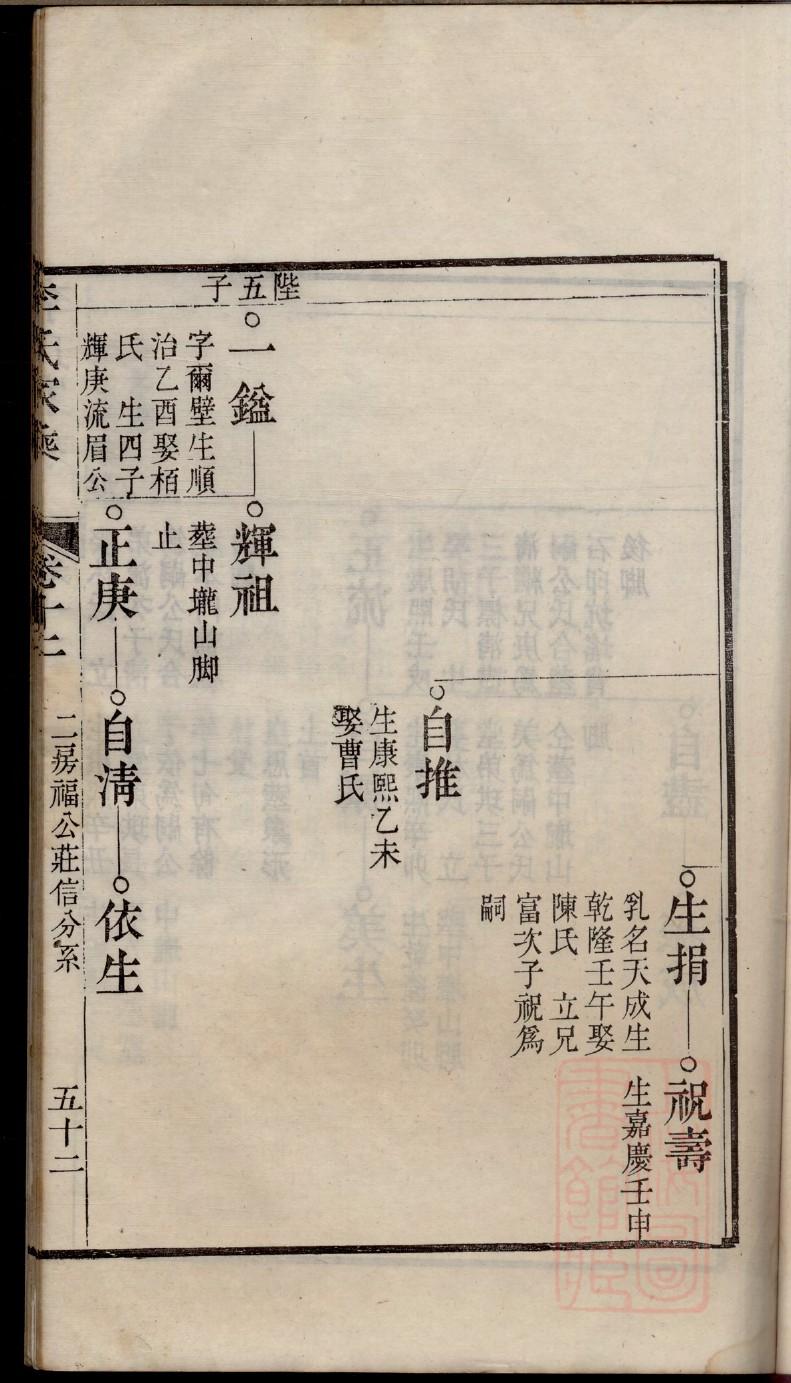 生捐
乳名天成生
乾隆壬午娶
陳氏　立兄
富次子祝爲
嗣
祝壽
生嘉慶壬申
自推
生康熙乙未
娶曹氏
陛五子
一鎰
字爾璧生順
治乙酉娶栢
氏　生四子
輝庚流眉公
輝祖
塟中壠山脚
止
正庚
自清
依生
二房福公莊信分系
五十二
李氏家乘